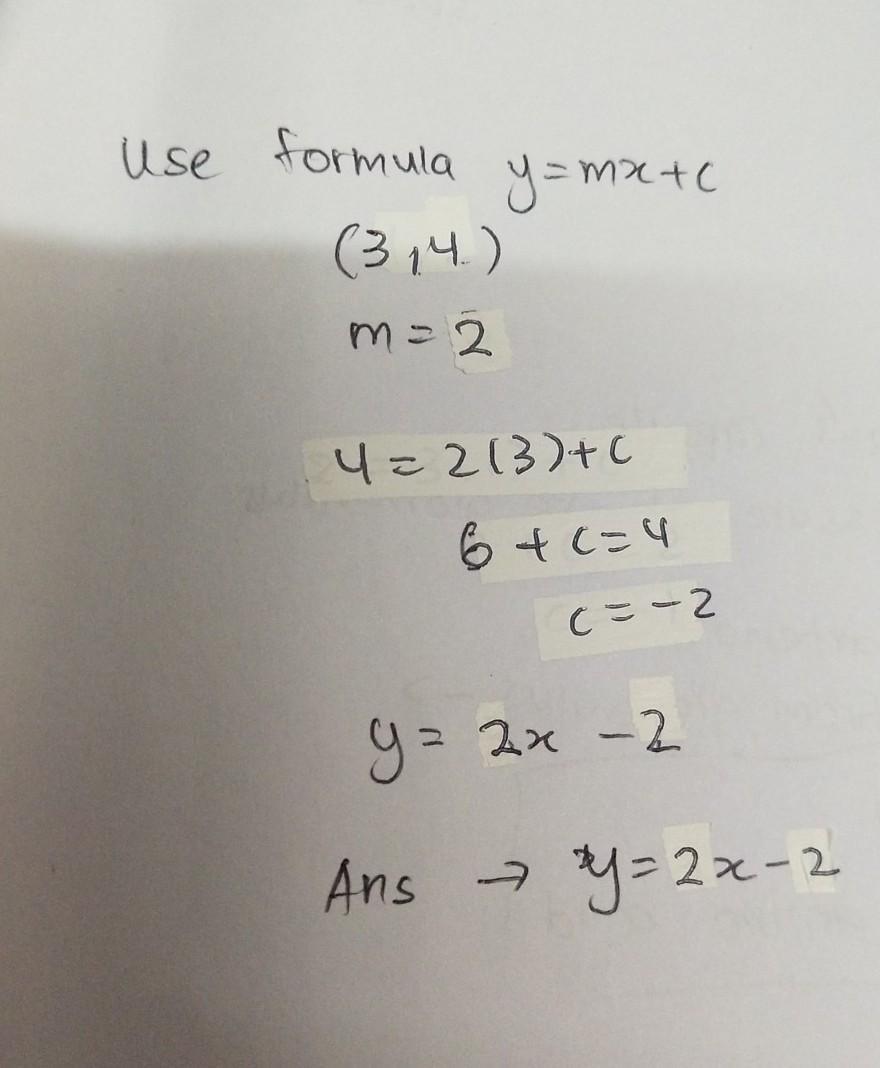 Use formula y=mx+c
(3,4)
m=2
4=2(3)+c
6+c=4
c=-2
y=2x-2
Ans → y=2x-2